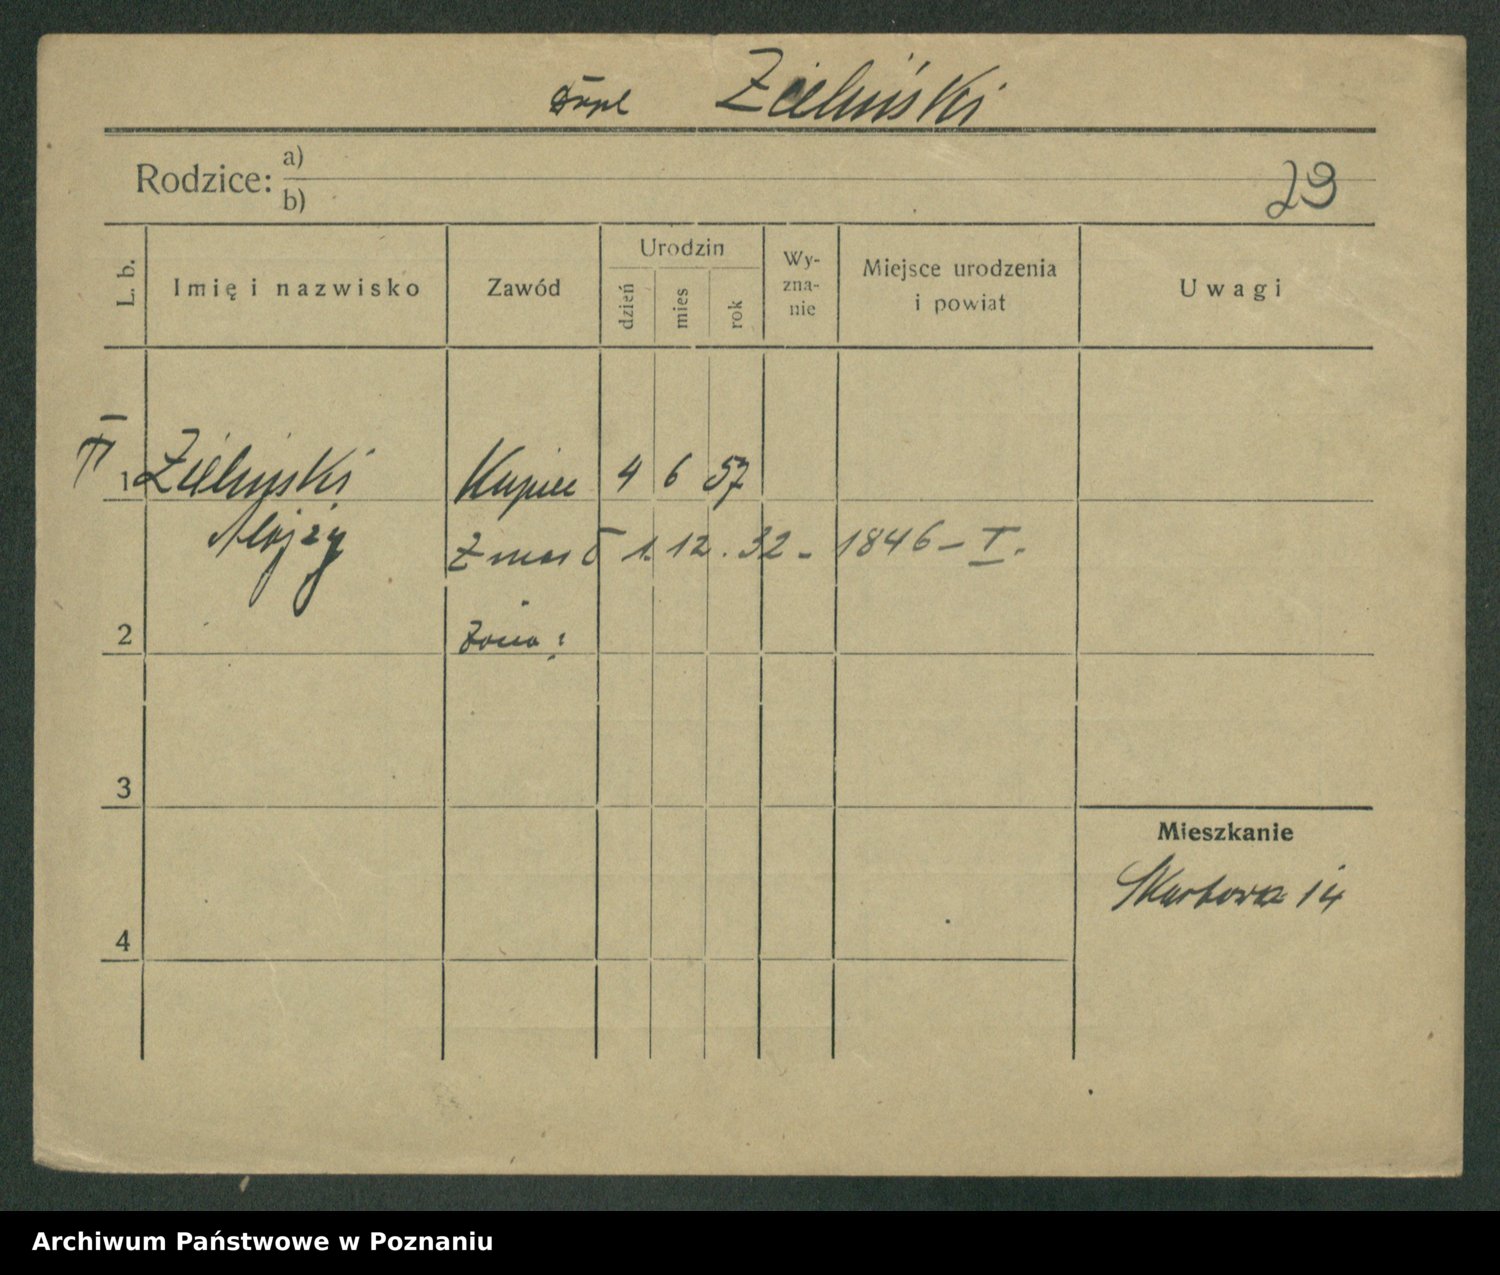 dupl Zieliński
Rodzice: a)
b)
29
L. b. Imię i nazwisko Zawód Urodzin dzień mies rok Wy-zna-nie Miejsce urodzenia i powiat Uwagi
1 Zieliński Kupiec 4 6 57
Alojzy
Zmarł 1. 12. 32 - 1846 - I.
2 żona:
3
Mieszkanie
Skarbowa 14
4
Archiwum Państwowe w Poznaniu